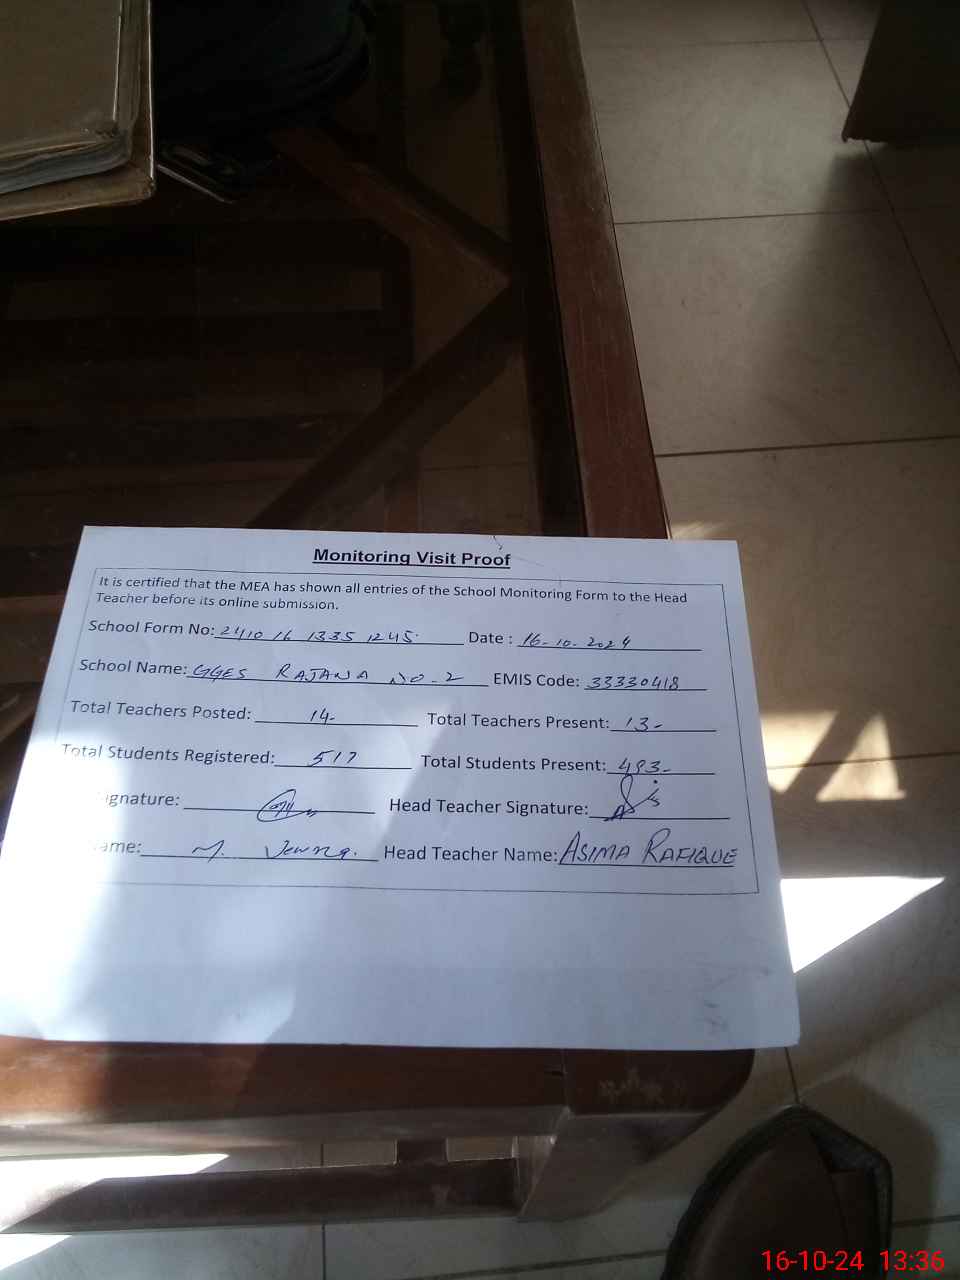 Monitoring Visit Proof
It is certified that the MEA has shown all entries of the School Monitoring Form to the Head
Teacher before its online submission.
School Form No: 2410 16 1335 1245 Date : 16-10-2024
School Name: GGES RAJANA NO-2 EMIS Code: 33330418
Total Teachers Posted: 14- Total Teachers Present: 13-
Total Students Registered: 517 Total Students Present: 493-
ignature: Head Teacher Signature:
ame: M. Head Teacher Name: ASIMA RAFIQUE
16-10-24 13:36